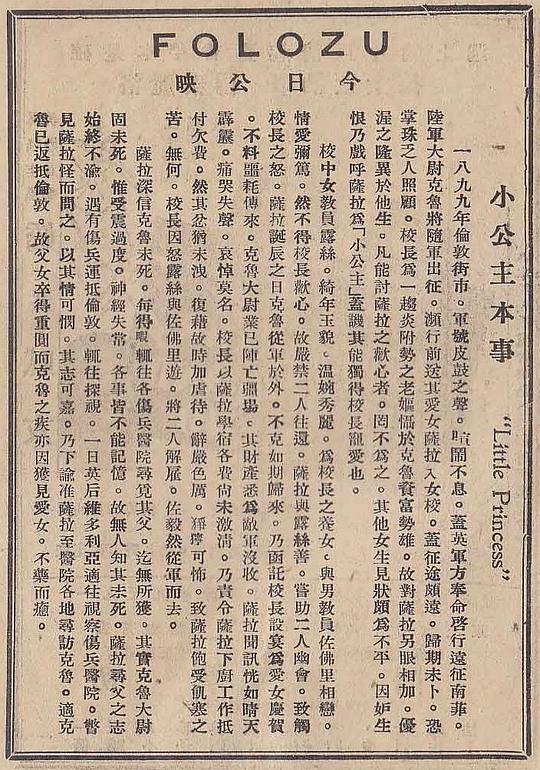 FOLOZU
今日公映
小公主本事 "Little Princess"
一八九九年倫敦街市。軍號皮鼓之聲。喧鬧不息。蓋英軍方奉命啓行遠征南菲。
陸軍大尉克魯將隨軍出征。瀕行前送其愛女薩拉入女校。蓋征途頗遠。歸期未卜。恐
掌珠乏人照顧。校長爲一趨炎附勢之老嫗懾於克魯資富勢雄。故對薩拉另眼相加。優
渥之隆異於他生。凡能討薩拉之歡心者。罔不爲之。其他女生見狀頗爲不平。因妒生
恨乃戲呼薩拉爲「小公主」蓋譏其能獨得校長寵愛也。
校中女敎員露絲。綺年玉貌。温婉秀麗。爲校長之養女。與男敎員佐佛里相戀。
情愛彌篤。然不得校長歡心。故嚴禁二人往還。薩拉與露絲善。嘗助二人幽會。致觸
校長之怒。薩拉誕辰之日克魯從軍於外。不克如期歸來。乃函託校長設宴爲愛女慶賀
。不料噩耗傳來。克魯大尉業已陣亡疆場。其財產悉爲敵軍沒收。薩拉聞訊恍如晴天
霹靂。痛哭失聲。哀悼莫名。校長以薩拉學宿各費尙未激清。乃責令薩拉下廚工作抵
付欠費。然其忿猶未洩。復藉故時加虐待。辭嚴色厲。猙獰可怖。致薩拉飽受飢寒之
苦。無何。校長因怒露絲與佐佛里遊。將二人解雇。佐毅然從軍而去。
薩拉深信克魯未死。每得暇輒往各傷兵醫院尋覓其父。迄無所獲。其實克魯大尉
固未死。惟受震過度。神經失常。各事皆不能記憶。故無人知其未死。薩拉尋父之志
始終不渝。遇有傷兵運抵倫敦。輒往探視。一日英后維多利亞適往視察傷兵醫院。瞥
見薩拉怪而問之。以其情可憫。其志可嘉。乃下諭准薩拉至醫院各地尋訪克魯。適克
魯已返抵倫敦。故父女卒得重圓而克魯之疾亦因獲見愛女。不藥而癒。